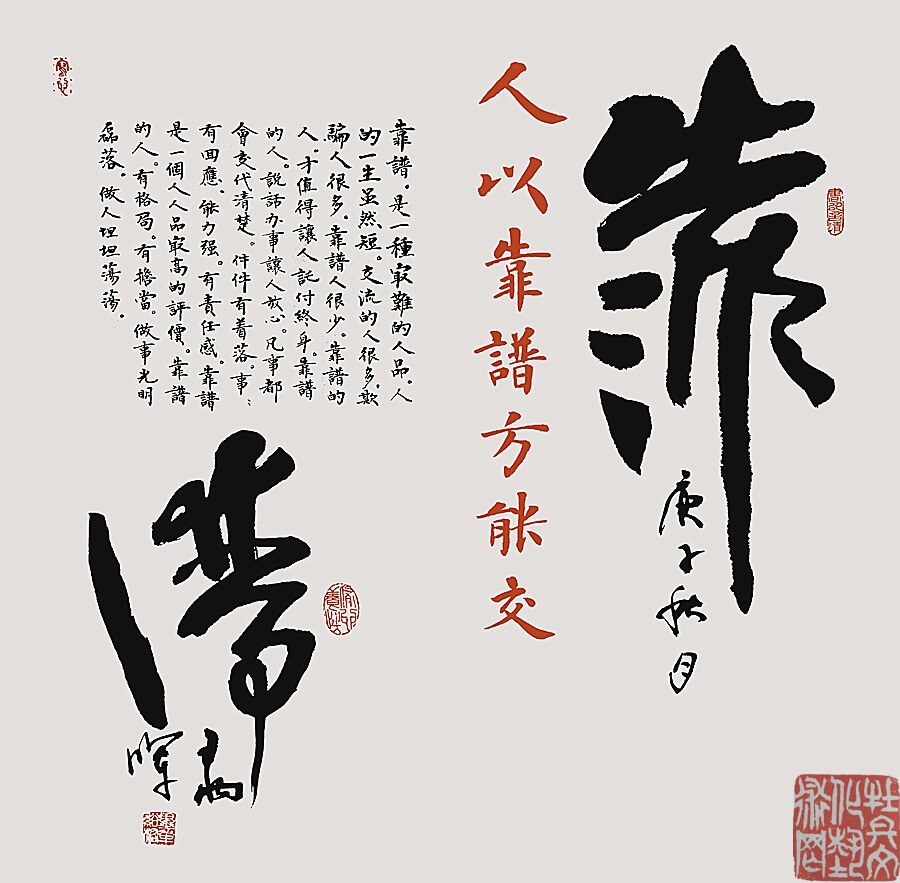 靠
庚子秋月
人以靠譜方能交
靠譜。是一種最難的人品。人
的一生虽然短。交流的人很多。欺
騙人很多。靠譜人很少。靠譜的
人。才值得讓人託付終身。靠譜
的人。說話办事讓人放心。凡事都
會交代清楚。件件有着落。事:
有回應。能力强。有責任感。靠譜
是一個人人品最高的評價。靠譜
的人。有格局。有擔當。做事光明
磊落。做人坦坦蕩蕩。
譜
杜兵文